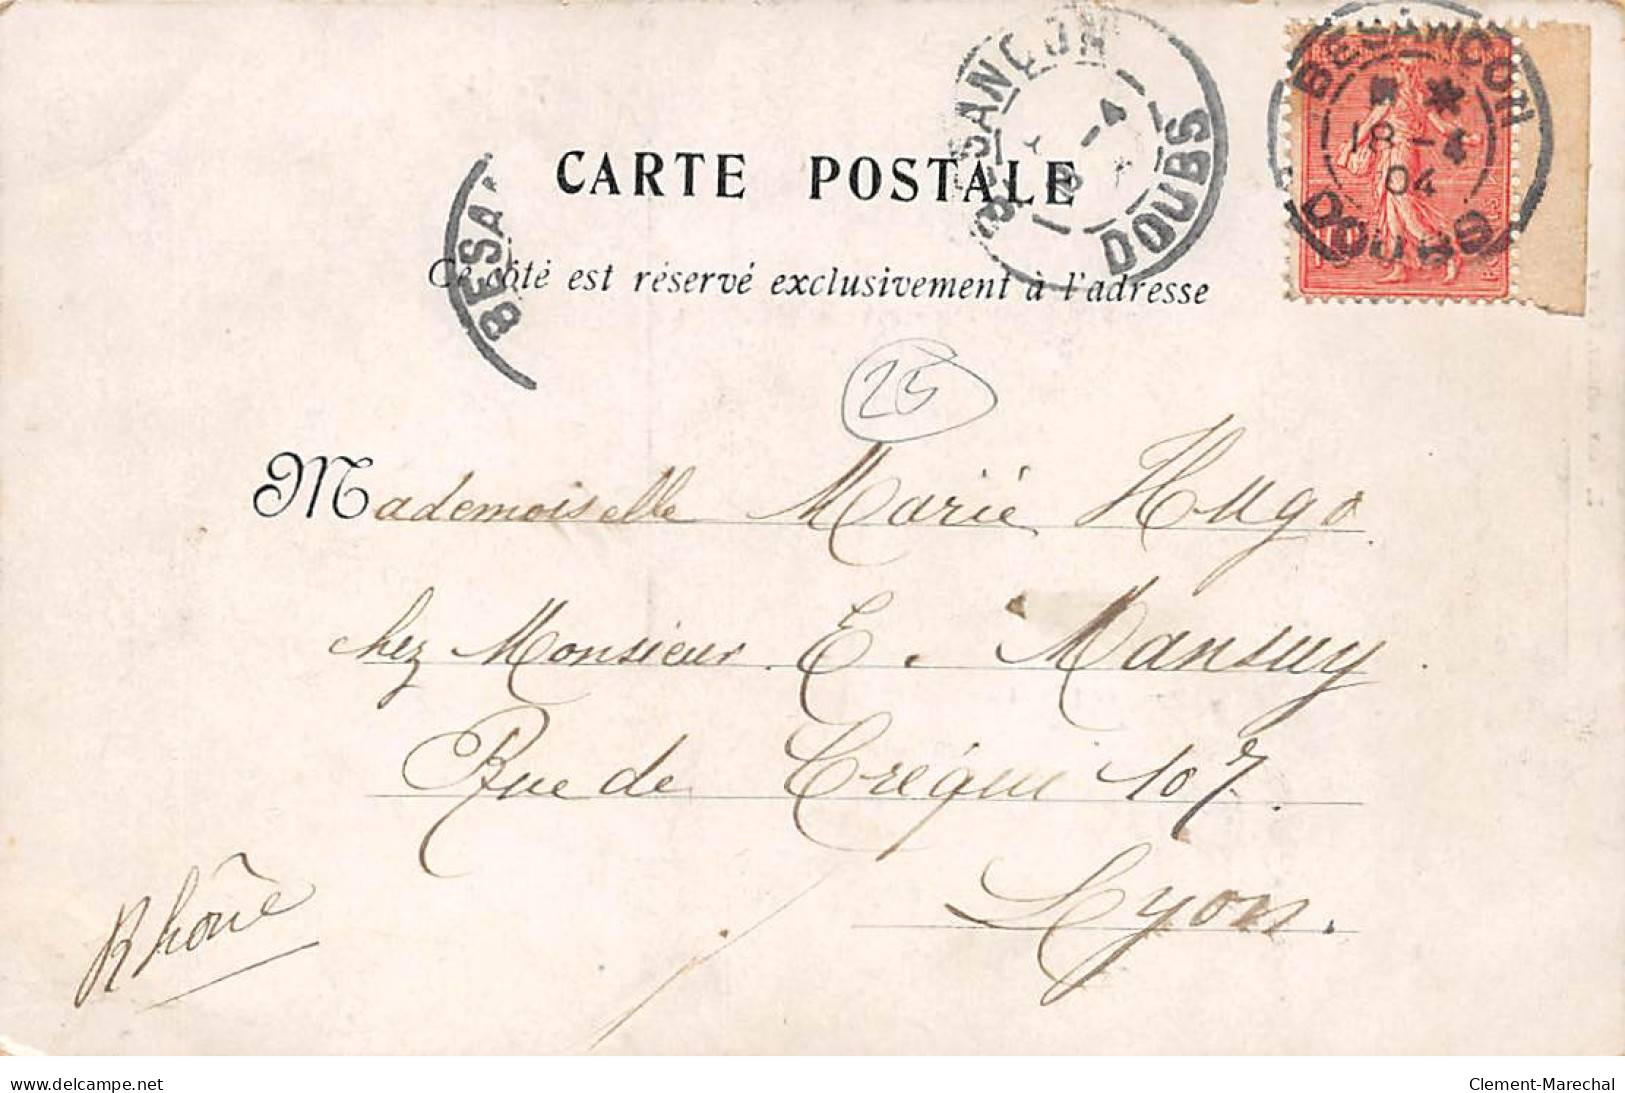 BESANÇON
DOUBS
BESANCON
18-4
04
DOUBS
CARTE POSTALE
BESA
Ce côté est réservé exclusivement à l'adresse
25
Mademoiselle Marie Hugo
chez Monsieur E. Mansuy.
Rue de Créqui 107.
Lyon.
Rhône
www.delcampe.net
Clement-Marechal